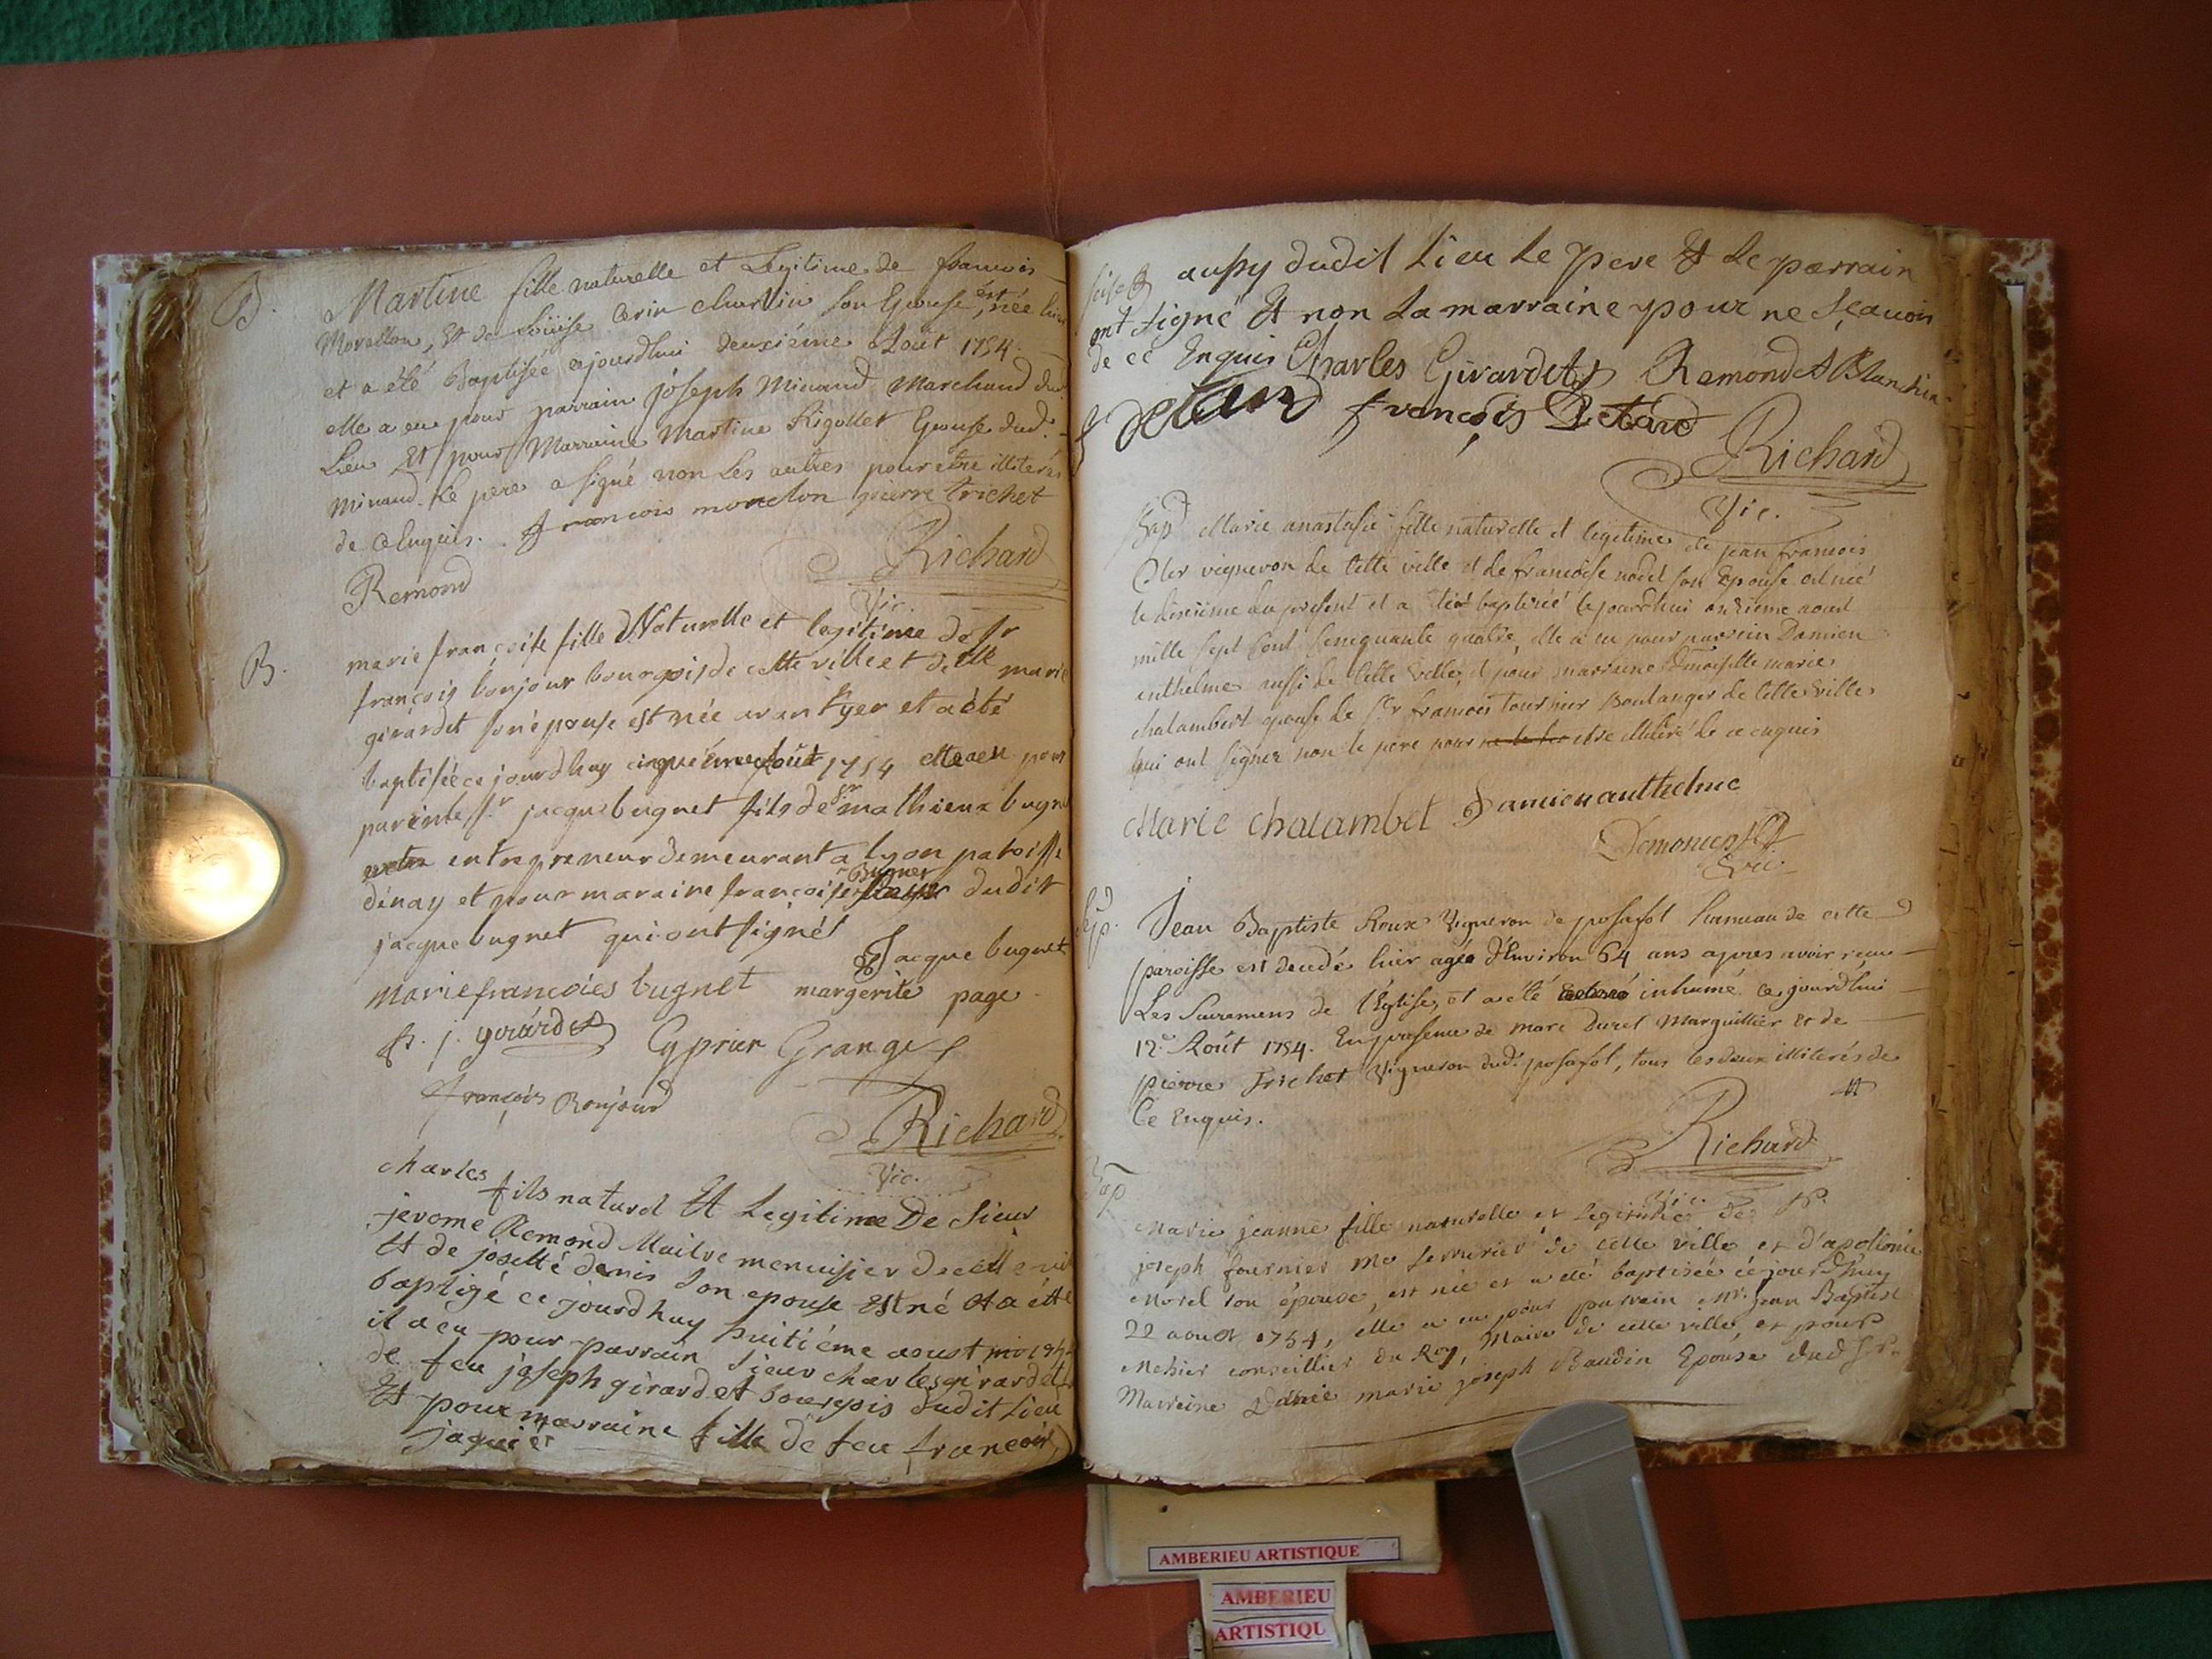 B.
Martine fille naturelle et Legitime de francois
Morellon, Et de Loüise Cerin charvin son Epouse, est née hier
et a été Baptisée cejourdhui deuxiéme Aout 1754.
elle a eu pour parrain joseph Minand Marchand dud.
Lieu Et pour Marraine Martine Rigollet Epouse dud.
Minand. Le pere a signé non Les autres pour etre illiterés
de ce Enquis. francois morelon pierre trichet
Remond Richard
Vic.
B.
marie françoise fille Naturelle et legitime de sr
françois bonjour bourgois de cette ville et de dlle marie
girardet son épouse est née avant hyer et a été
baptisée ce jourdhuy cinquiéme aoüt 1754 elle a eu pour
sr jacque bugnet fils de sr mathieux bugnet
entrepreneur demeurant a lyon paroisse
dénay et pour maraine françoise Bugnet dudit
jacque bugnet qui ont signét
Jacque bugnet
marie francoies bugnet margerite page
fr. j. girardet Cyprien Grange
françois Bonjour
Richard
Vic.
charles fils naturel Et Legitime De sieur
jerome Remond Maitre menuisier de cette ville
Et de josette denis son epouse Est né Et a été
baptigé ce jourd huy huitiéme aoust 1754
il a eu pour parrain sieur charles girardet fils
de feu joseph girardet bourgois dudit Lieu
Et pour marraine fille de feu francois
jaquier
aussy dudit Lieu Le pere Et Le parrain
ont signé Et non La marraine pour ne sçavoir
de ce Enquis Charles Girardet Remond Blanchin
françois Betard
Richard
Vic.
Bap Marie anastasie fille naturelle et legitime de jean francois
vigneron de cette ville et de francoise nodet son Epouse est née
le dixieme du present et a été baptisée ce jourdhui onzieme aout
mille sept cent cinquante quatre, elle a eu pour parrain Damien
anthelme aussi de cette ville, et pour marraine dmoiselle marie
chalambert epouse de sr francois tournier Boulanger de cette ville
qui ont signez non le pere pour etre illitéré de ce enquis
Marie chalambel Damien anthelme
Vic.
Sep. Jean Baptiste Roux Vigneron de posafol hameau de cette
paroisse est decedé hier agée d'Environ 64 ans apres avoir reçu
Les Sacremens de l'Eglise, et a été inhumé ce jourdhui
12e Aoút 1754. En presence de marc Durel Marguillier et de
pierre Trichet Vigneron dud. posafol, tous les deux illiterés de
Ce Enquis.
Richard
Vic.
Bap
Marie jeanne fille naturelle et Legitime de sr.
joseph fournier Me serrurier de cette ville et d'apolonie
Morel son épouse, est née et a été baptisée cejourd'huy
22 aoust 1754, elle a eu pour parrain Mr. jean Baptiste
Messier conseillier du Roy, Maire de cette ville, et pour
Marreine Dame marie joseph Baudin Epouse dud Sr.
AMBERIEU ARTISTIQUE
AMBERIEU
ARTISTIQU